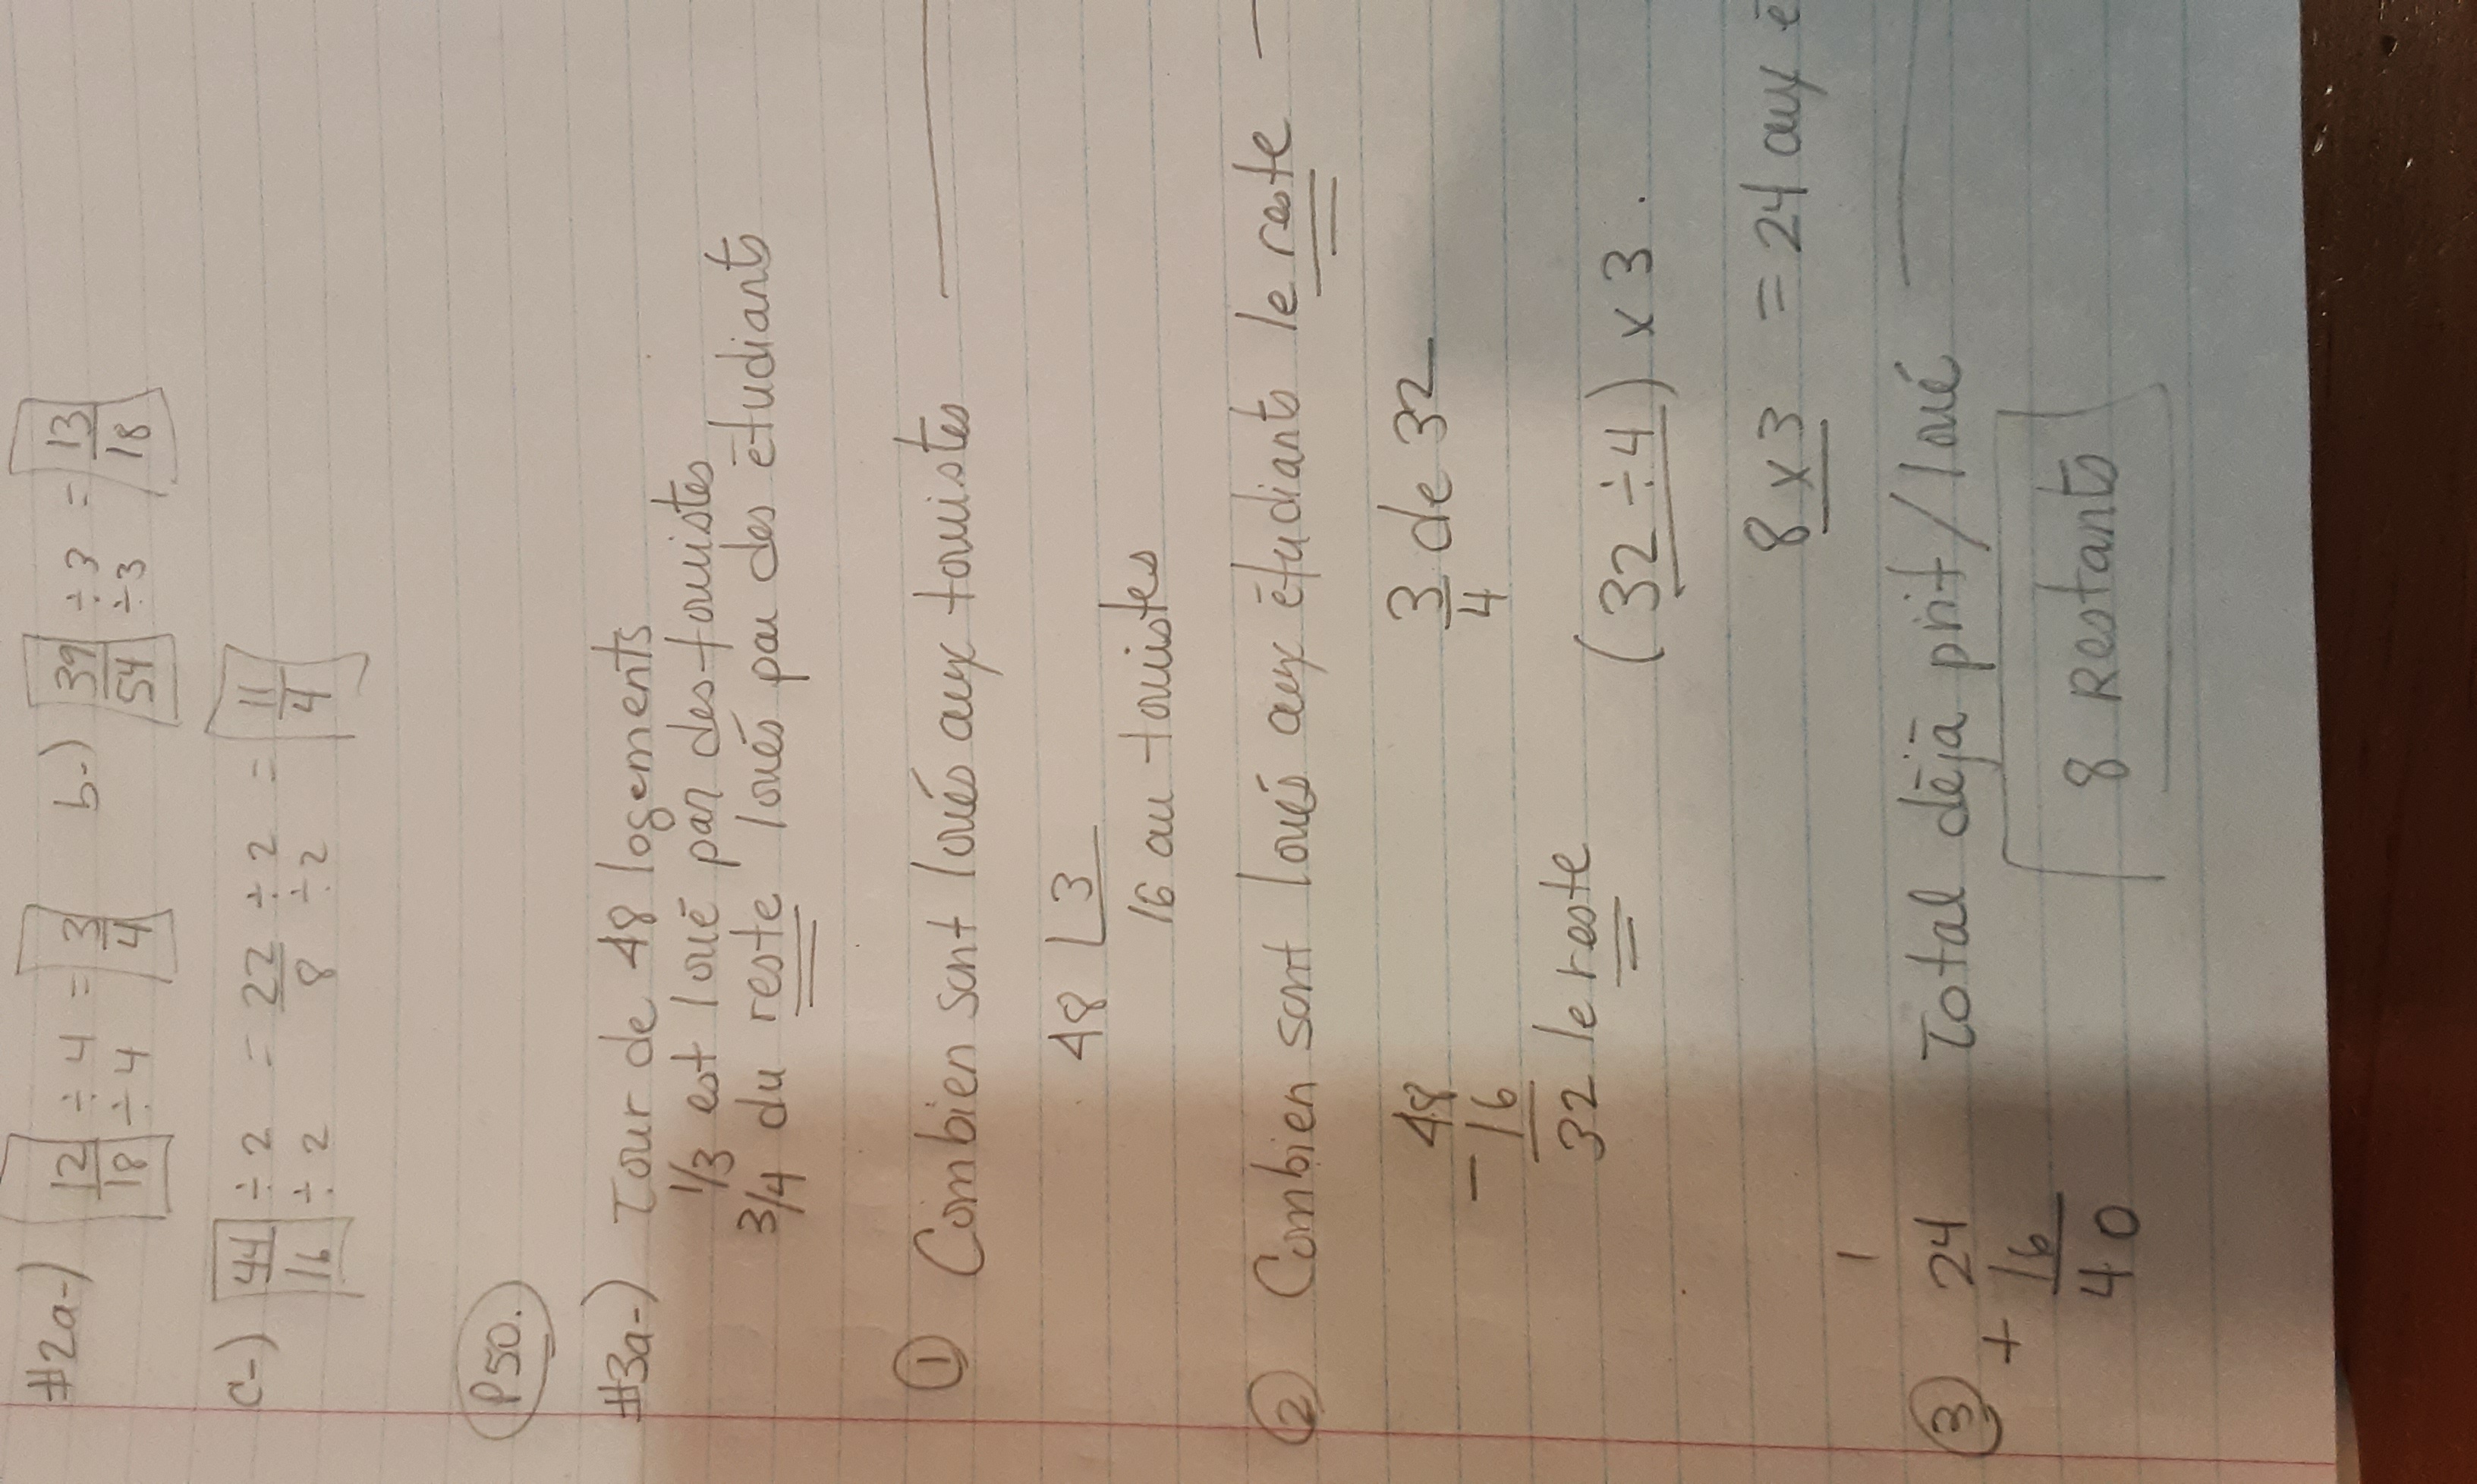 #2a-) 12/18 ÷4/÷4 = 3/4 b-) 39/54 ÷3/÷3 = 13/18
c-) 44/16 ÷2/÷2 = 22/8 ÷2/÷2 = 11/4
P50.
#3a-) Tour de 48 logements
1/3 est loué par des touristes
3/4 du reste loués par des étudiants
① Combien sont loués aux touristes
48 3
16 au touristes
② Combien sont loués aux étudiants le reste
48 3/4 de 32
- 16
32 le reste (32 ÷ 4) x 3.
8 x 3 = 24 aux é
③ 24 Total déjà prit / loué
+ 16
40 8 Restants